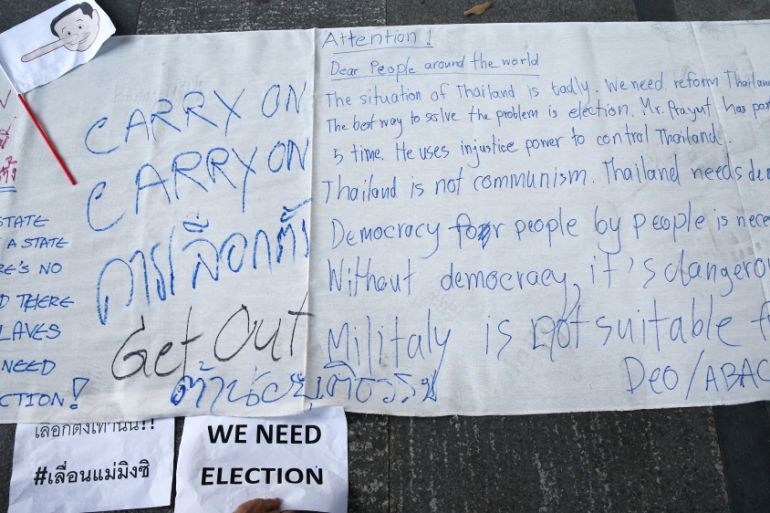 STATE
A STATE
NO
THERE
NEED
CARRY ON
CARRY ON
การเลือกตั้ง
Get Out
Attention!
Dear People around the world
The situation of Thailand is badly. We need reform Thailand
The best way to solve the problem is election. Mr. Prayut has
5 time. He uses injustice power to control Thailand.
Thailand is not communism. Thailand needs
Democracy for people by people is
Without democracy, it's
Militaly is not suitable
Deo/ABAC
เลือกตั้งเท่านั้น!!
#เลื่อนแม่มึงซิ
WE NEED
ELECTION